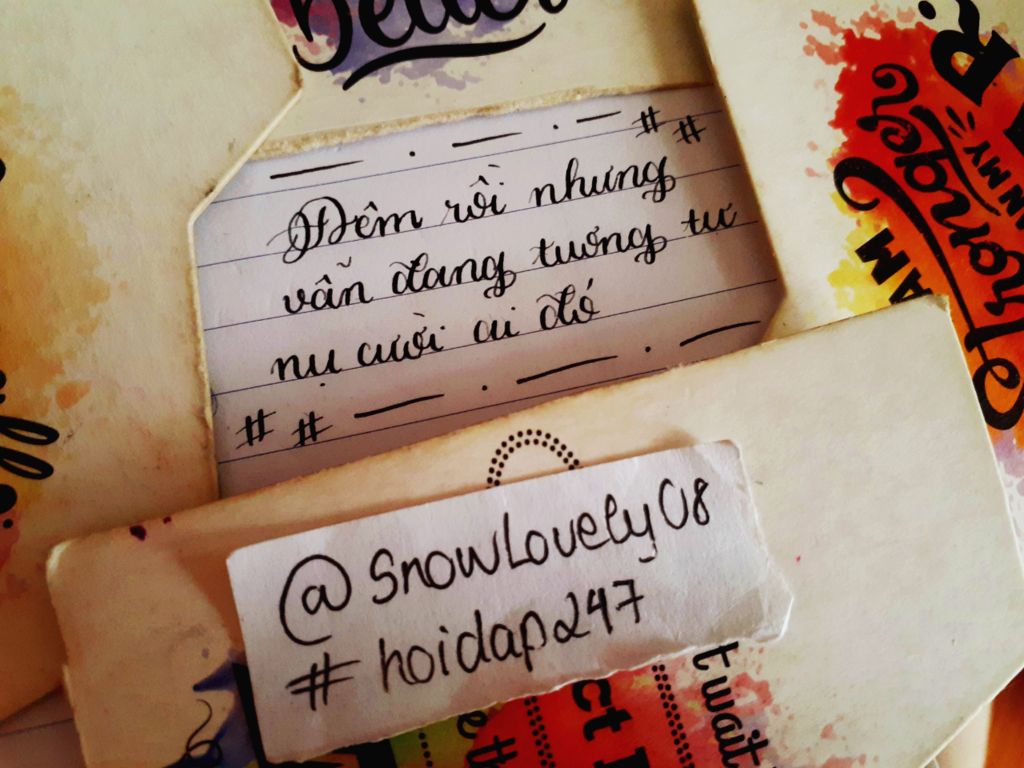 better
— . — . — # #
Đêm rồi nhưng
vẫn đang tương tư
nụ cười ai đó
# # — . — . —
@SnowLovely08
#hoidap247
AM
stronger
ct
e th
t wait